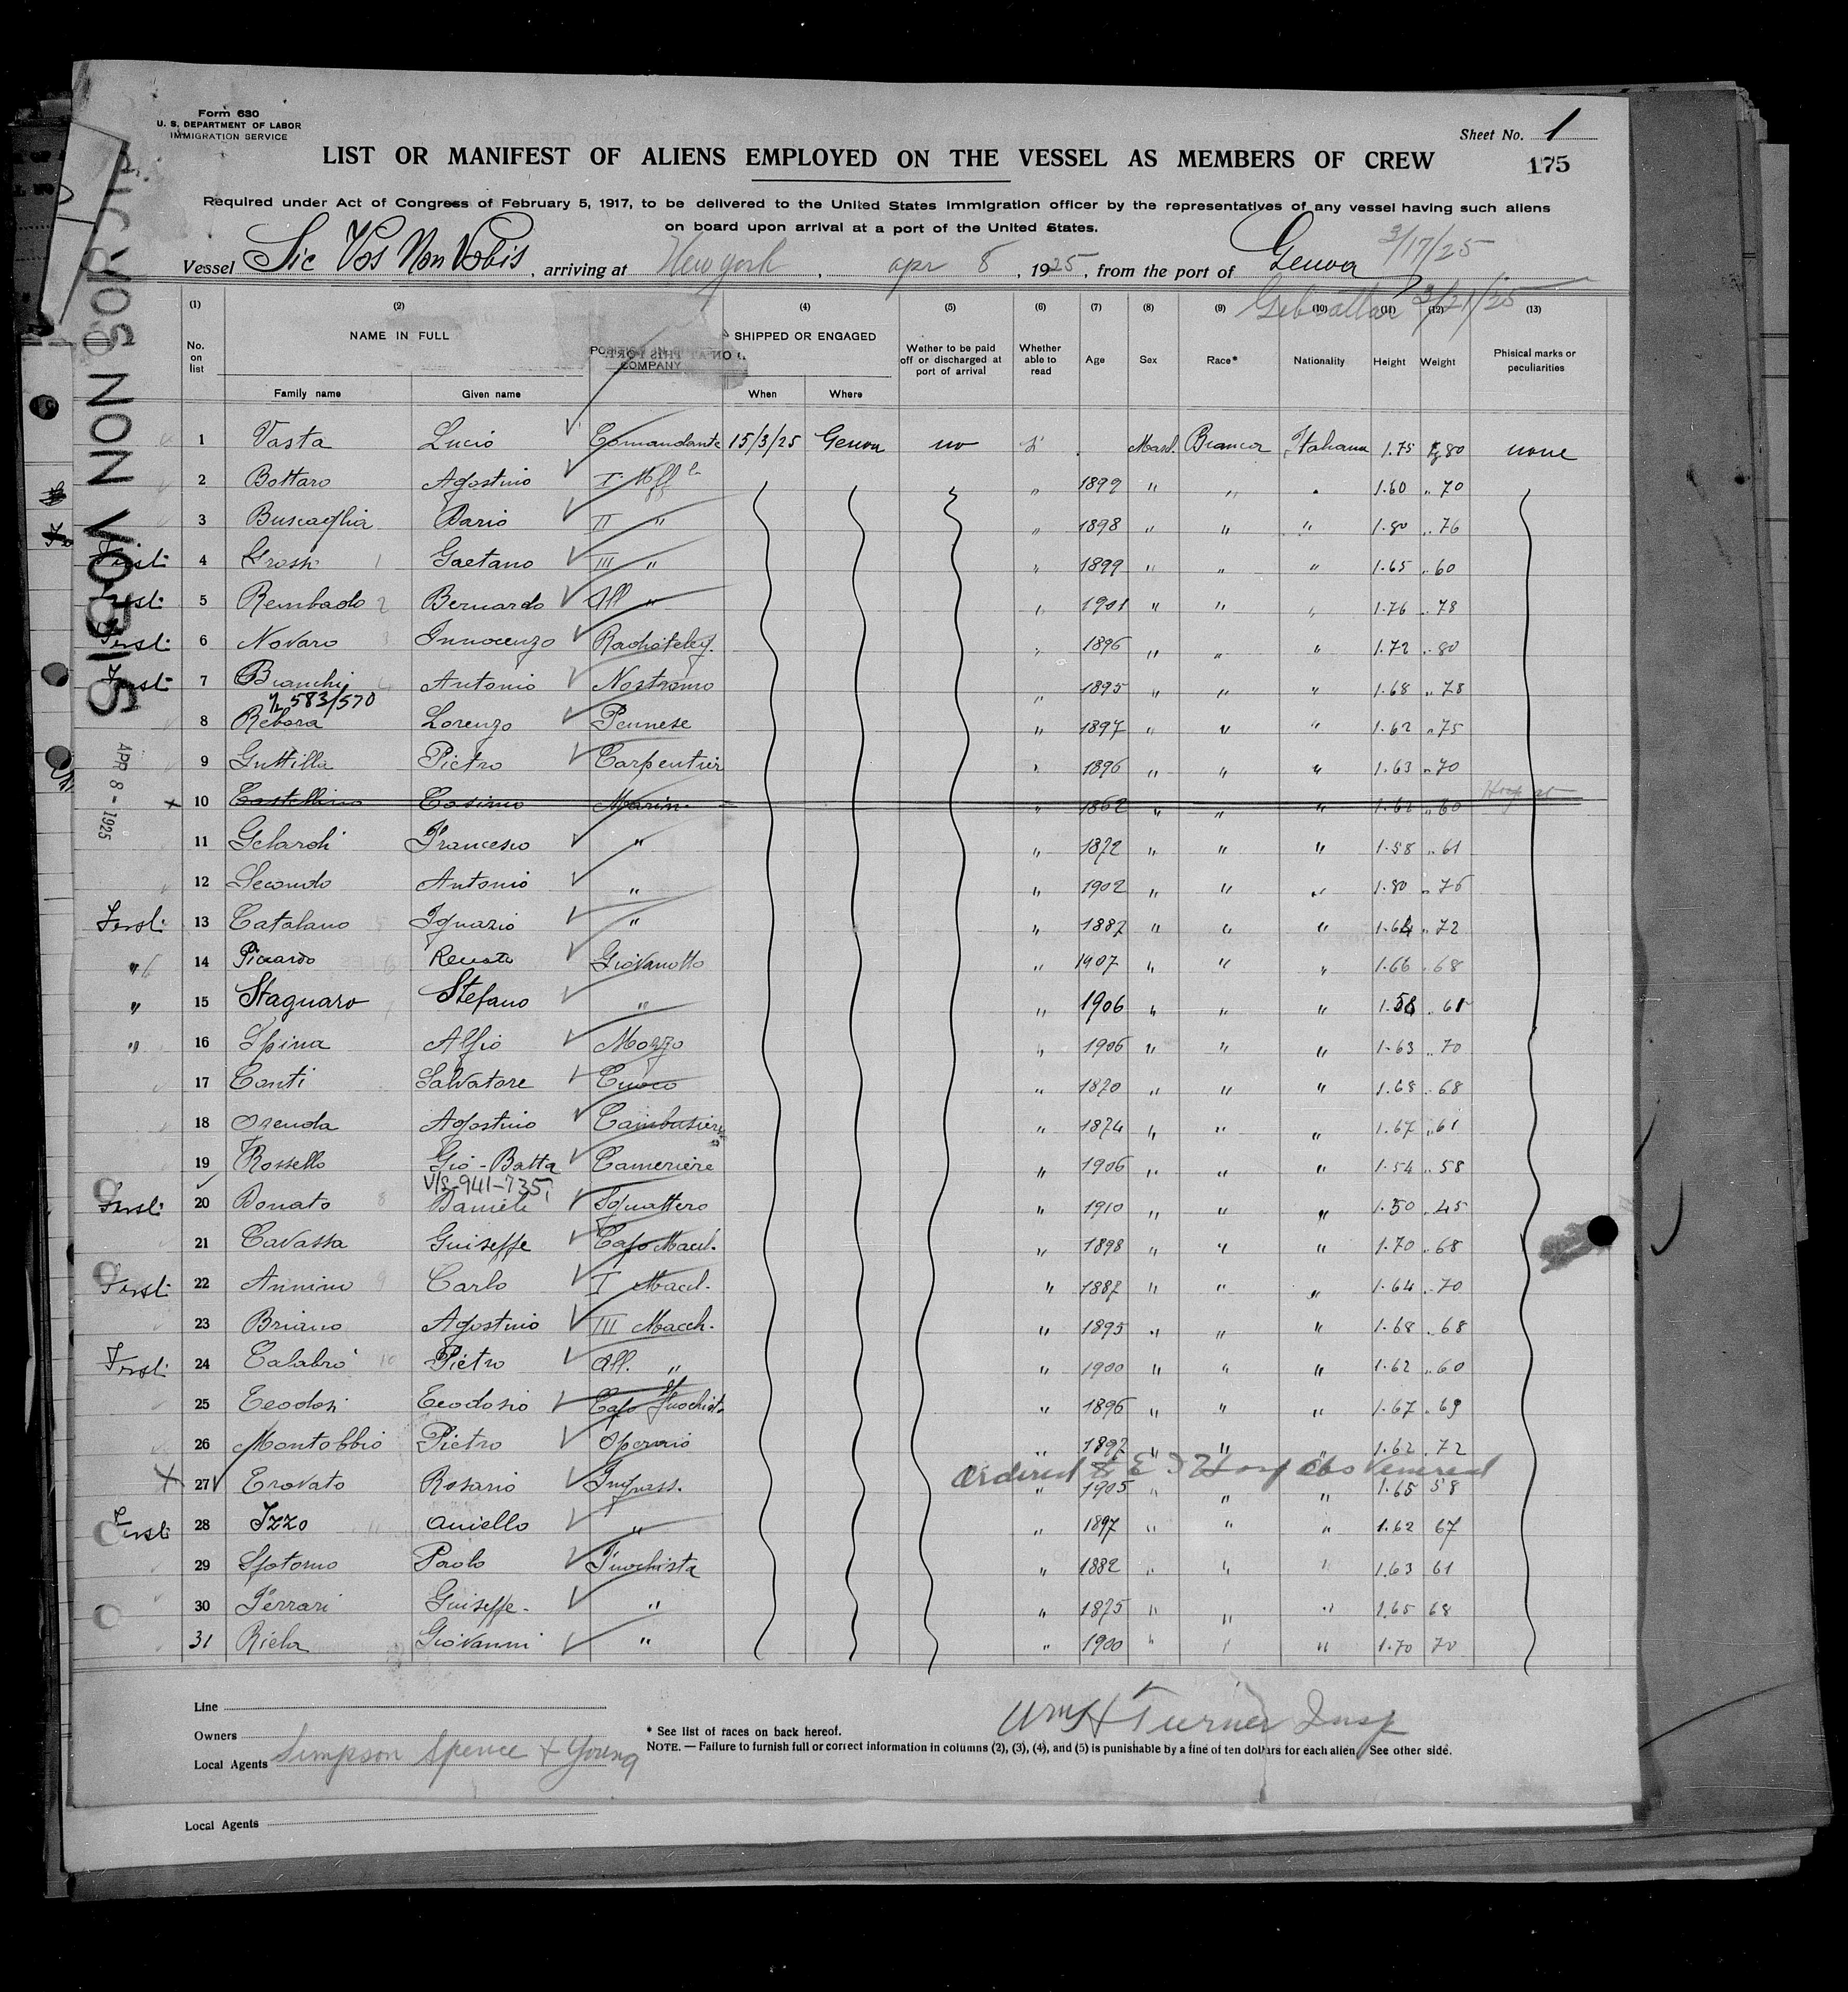 Form 630
U. S. DEPARTMENT OF LABOR
IMMIGRATION SERVICE
Sheet No. 1
LIST OR MANIFEST OF ALIENS EMPLOYED ON THE VESSEL AS MEMBERS OF CREW
175
Required under Act of Congress of February 5, 1917, to be delivered to the United States Immigration officer by the representatives of any vessel having such aliens
on board upon arrival at a port of the United States.
3/17/25
Vessel Sic Vos Non Vobis, arriving at New york, apr 8, 1925, from the port of Genova
Gebraltar 3/21/25
SIC VOS NON VOBIS
APR 8 - 1925
(1) (2) (4) (5) (6) (7) (8) (9) (10) (11) (12) (13)
No. on list NAME IN FULL Family name Given name COMPANY SHIPPED OR ENGAGED When Where Wether to be paid off or discharged at port of arrival Whether able to read Age Sex Race* Nationality Height Weight Phisical marks or peculiarities
1 Vasta Lucio Comandante 15/3/25 Genova no Masch. Bianca Italiana 1.75 Kg 80 none
2 Bottaro Agostino I° Uff " 1899 " " 1.60 " 70
3 Buscaglia Dario II " " 1898 " " " 1.80 " 76
First: 4 Grossi 1 Gaetano III " " 1899 " " " 1.65 " 60
First: 5 Rembado 2 Bernardo All " " 1901 " " " 1.76 " 78
First: 6 Novaro 3 Innocenzo Radiotelegr. " 1896 " " " 1.72 " 80
First: 7 Bianchi 4 Antonio Nostromo " 1895 " " " 1.68 " 78
583/570
8 Rebora Lorenzo Pennese " 1897 " " " 1.62 " 75
9 Guttilla Pietro Carpentier " 1896 " " " 1.63 " 70
x 10 Castellino Cosimo Marin. " 1862 " " " 1.62 " 60
11 Gelardi Francesco " " 1872 " " " 1.58 " 61
12 Secondo Antonio " " 1902 " " " 1.80 " 76
First: 13 Catalano 5 Ignazio " " 1887 " " " 1.64 " 72
" 14 Picardo 6 Renato Giovanotto " 1907 " " " 1.66 " 68
" 15 Stagnaro 7 Stefano " " 1906 " " " " 61
" 16 Spina Alfio Mozzo " 1906 " " " 1.63 " 70
17 Conti Salvatore Cuoco " 1870 " " " 1.68 " 68
18 Orenda Agostino Cambusiere " 1874 " " " 1.67 " 61
19 Rossello Gio-Batta Cameriere " 1906 " " " 1.54 " 58
V/s-941-735
First: 20 Donato 8 Daniele Sguattero " 1910 " " " 1.50 " 45
21 Cavassa Guiseppe Capo Macch. " 1898 " " " 1.70 " 68
First: 22 Annino 9 Carlo I Macch. " 1887 " " " 1.64 " 70
23 Briano Agostino III Macch. " 1895 " " " 1.68 " 68
First: 24 Calabro' 10 Pietro All. " " 1900 " " " 1.62 " 60
25 Teodosi Teodosio Capo Fuochista " 1896 " " " 1.67 " 69
26 Montobbio Pietro Operaio " 1897 " " " 1.62 " 72
Ordered to E I Hosp obs Venereal
X 27 Trovato Rosario Ingrass. " 1905 " " " 1.65 58
First: 28 Izzo 11 Aniello " " 1897 " " " 1.62 67
29 Spotorno Paolo Fuochista " 1882 " " " 1.63 61
30 Ferrari Guiseppe " " 1875 " " " 1.65 68
31 Riela Giovanni " " 1900 " " " 1.70 70
Line
Owners
Local Agents Simpson Spence & Young
* See list of races on back hereof.
Wm H Turner Insp
NOTE. — Failure to furnish full or correct information in columns (2), (3), (4), and (5) is punishable by a fine of ten dollars for each alien. See other side.
Local Agents